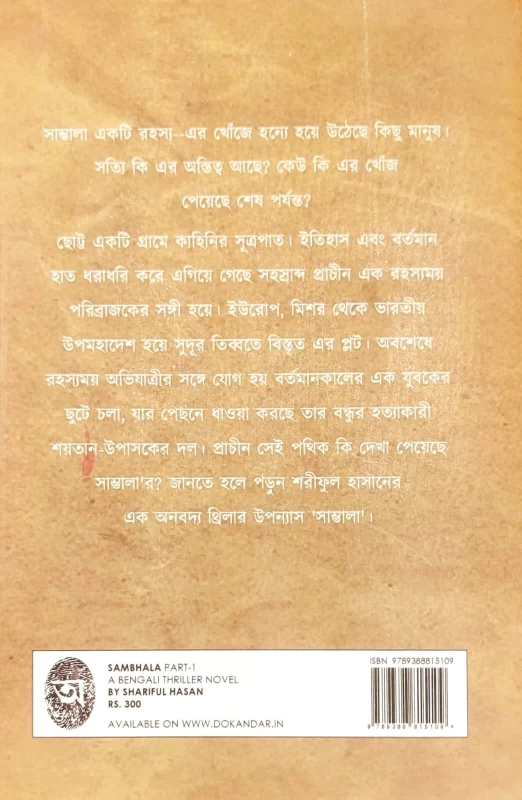 সাম্ভালা একটি রহস্য--এর খোঁজে হন্যে হয়ে উঠেছে কিছু মানুষ।
সত্যি কি এর অস্তিত্ব আছে? কেউ কি এর খোঁজ
পেয়েছে শেষ পর্যন্ত?
ছোট্ট একটি গ্রামে কাহিনির সূত্রপাত। ইতিহাস এবং বর্তমান
হাত ধরাধরি করে এগিয়ে গেছে সহস্রাব্দ প্রাচীন এক রহস্যময়
পরিব্রাজকের সঙ্গী হয়ে। ইউরোপ, মিশর থেকে ভারতীয়
উপমহাদেশ হয়ে সুদূর তিব্বতে বিস্তৃত এর প্লট। অবশেষে
রহস্যময় অভিযাত্রীর সঙ্গে যোগ হয় বর্তমানকালের এক যুবকের
ছুটে চলা, যার পেছনে ধাওয়া করছে তার বন্ধুর হত্যাকারী
শয়তান-উপাসকের দল। প্রাচীন সেই পথিক কি দেখা পেয়েছে
সাম্ভালা'র? জানতে হলে পড়ুন শরীফুল হাসানের
এক অনবদ্য থ্রিলার উপন্যাস 'সাম্ভালা'।
অ
SAMBHALA PART-1
A BENGALI THRILLER NOVEL
BY SHARIFUL HASAN
RS. 300
AVAILABLE ON WWW.DOKANDAR.IN
ISBN 9789388815109
9 789388 815109